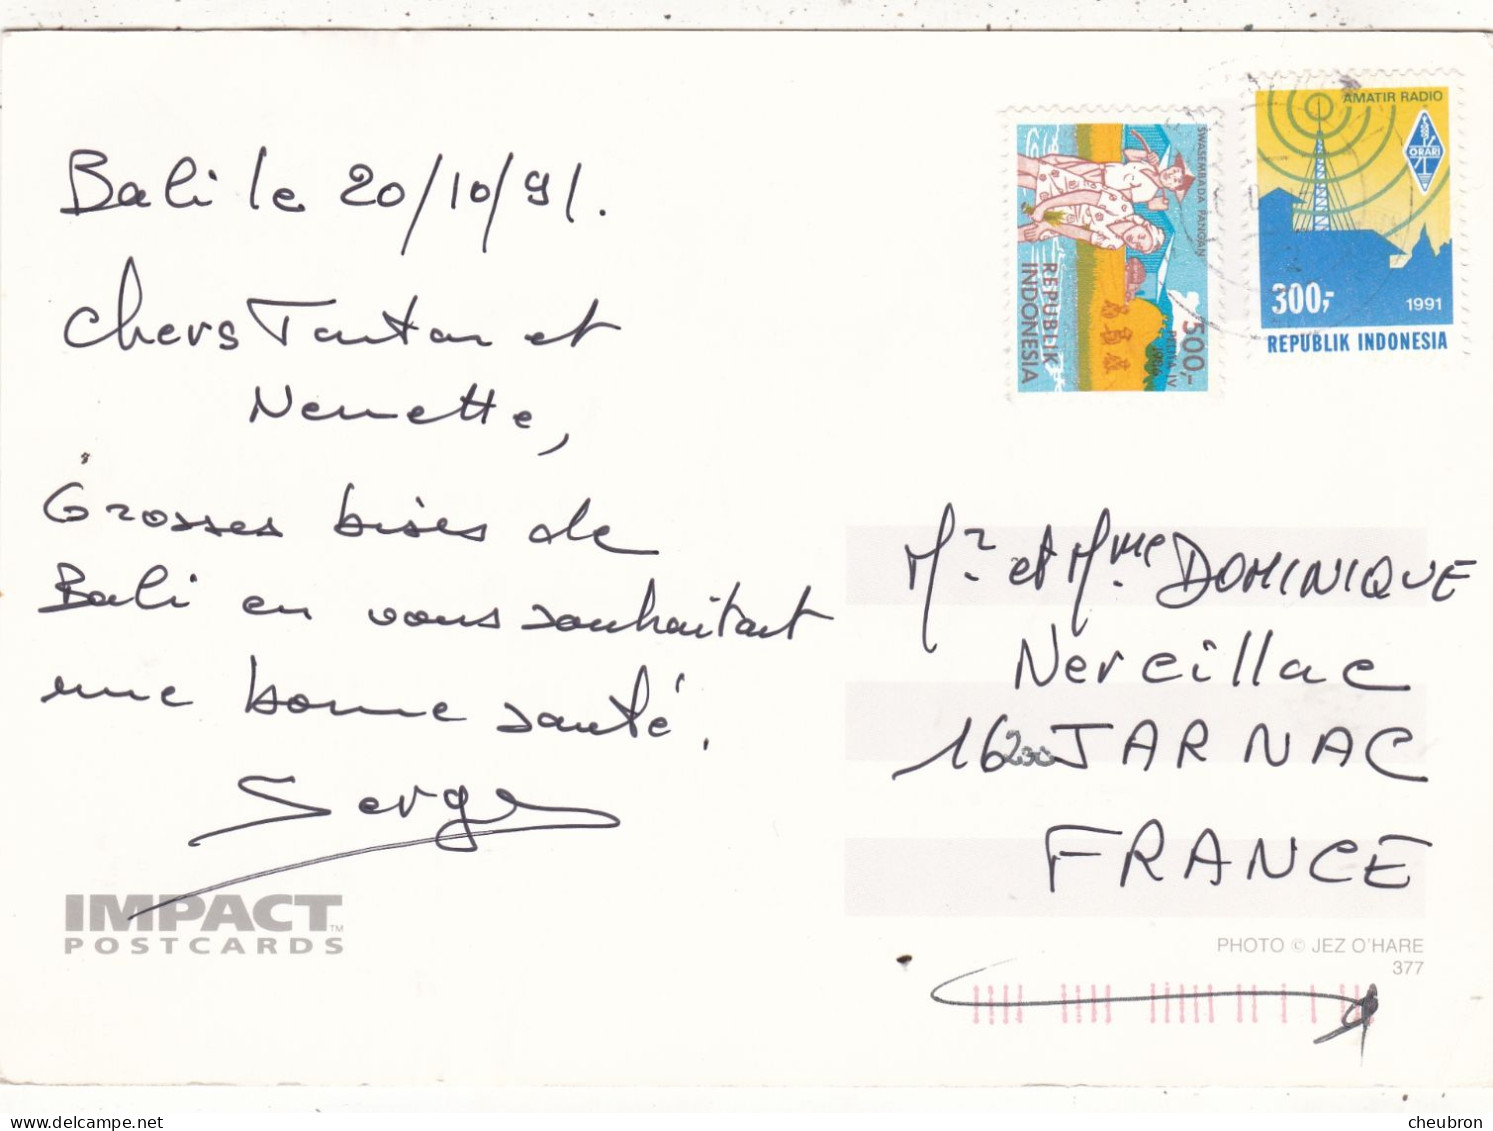 Bali le 20/10/91.
Chers Tonton et
Nenette,
Grosses bises de
Bali en vous souhaitant
une bonne santé.
Serge
IMPACT TM
POSTCARDS
SWASEMBADA PANGAN
500,-
PELITA IV
REPUBLIK
INDONESIA
AMATIR RADIO
ORARI
300,-
1991
REPUBLIK INDONESIA
Mr et Mme DOMINIQUE
Nercillac
16200 JARNAC
FRANCE
PHOTO © JEZ O'HARE
377
cheubron